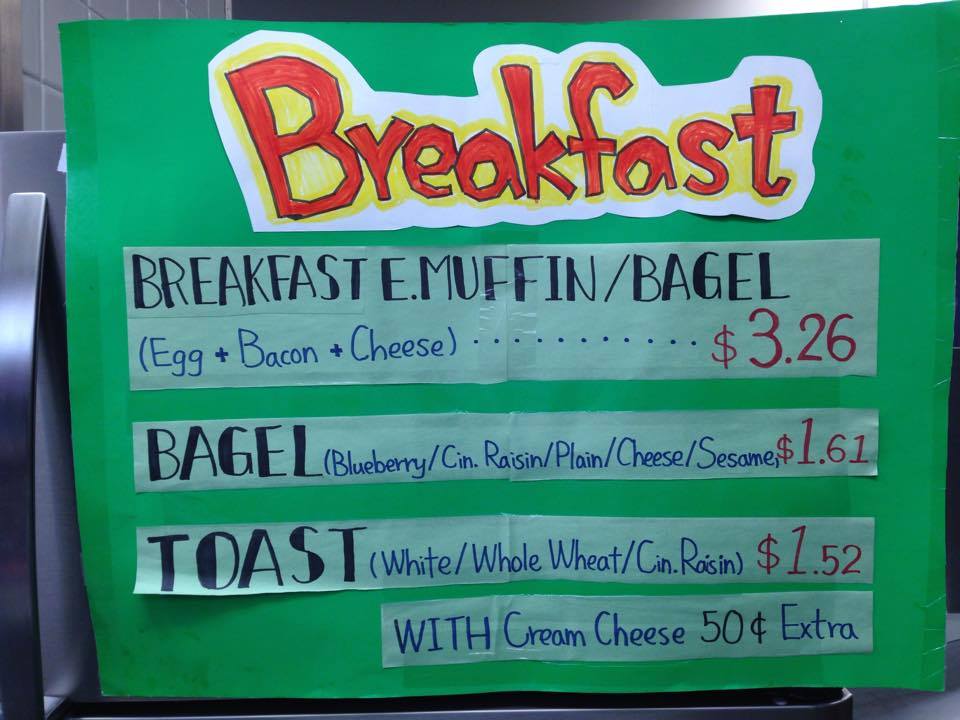 Breakfast
BREAKFAST E.MUFFIN/BAGEL
(Egg + Bacon + Cheese) ............ $3.26
BAGEL (Blueberry/Cin. Raisin/Plain/Cheese/Sesame, $1.61
TOAST (White/Whole Wheat/Cin.Raisin) $1.52
WITH Cream Cheese 50¢ Extra